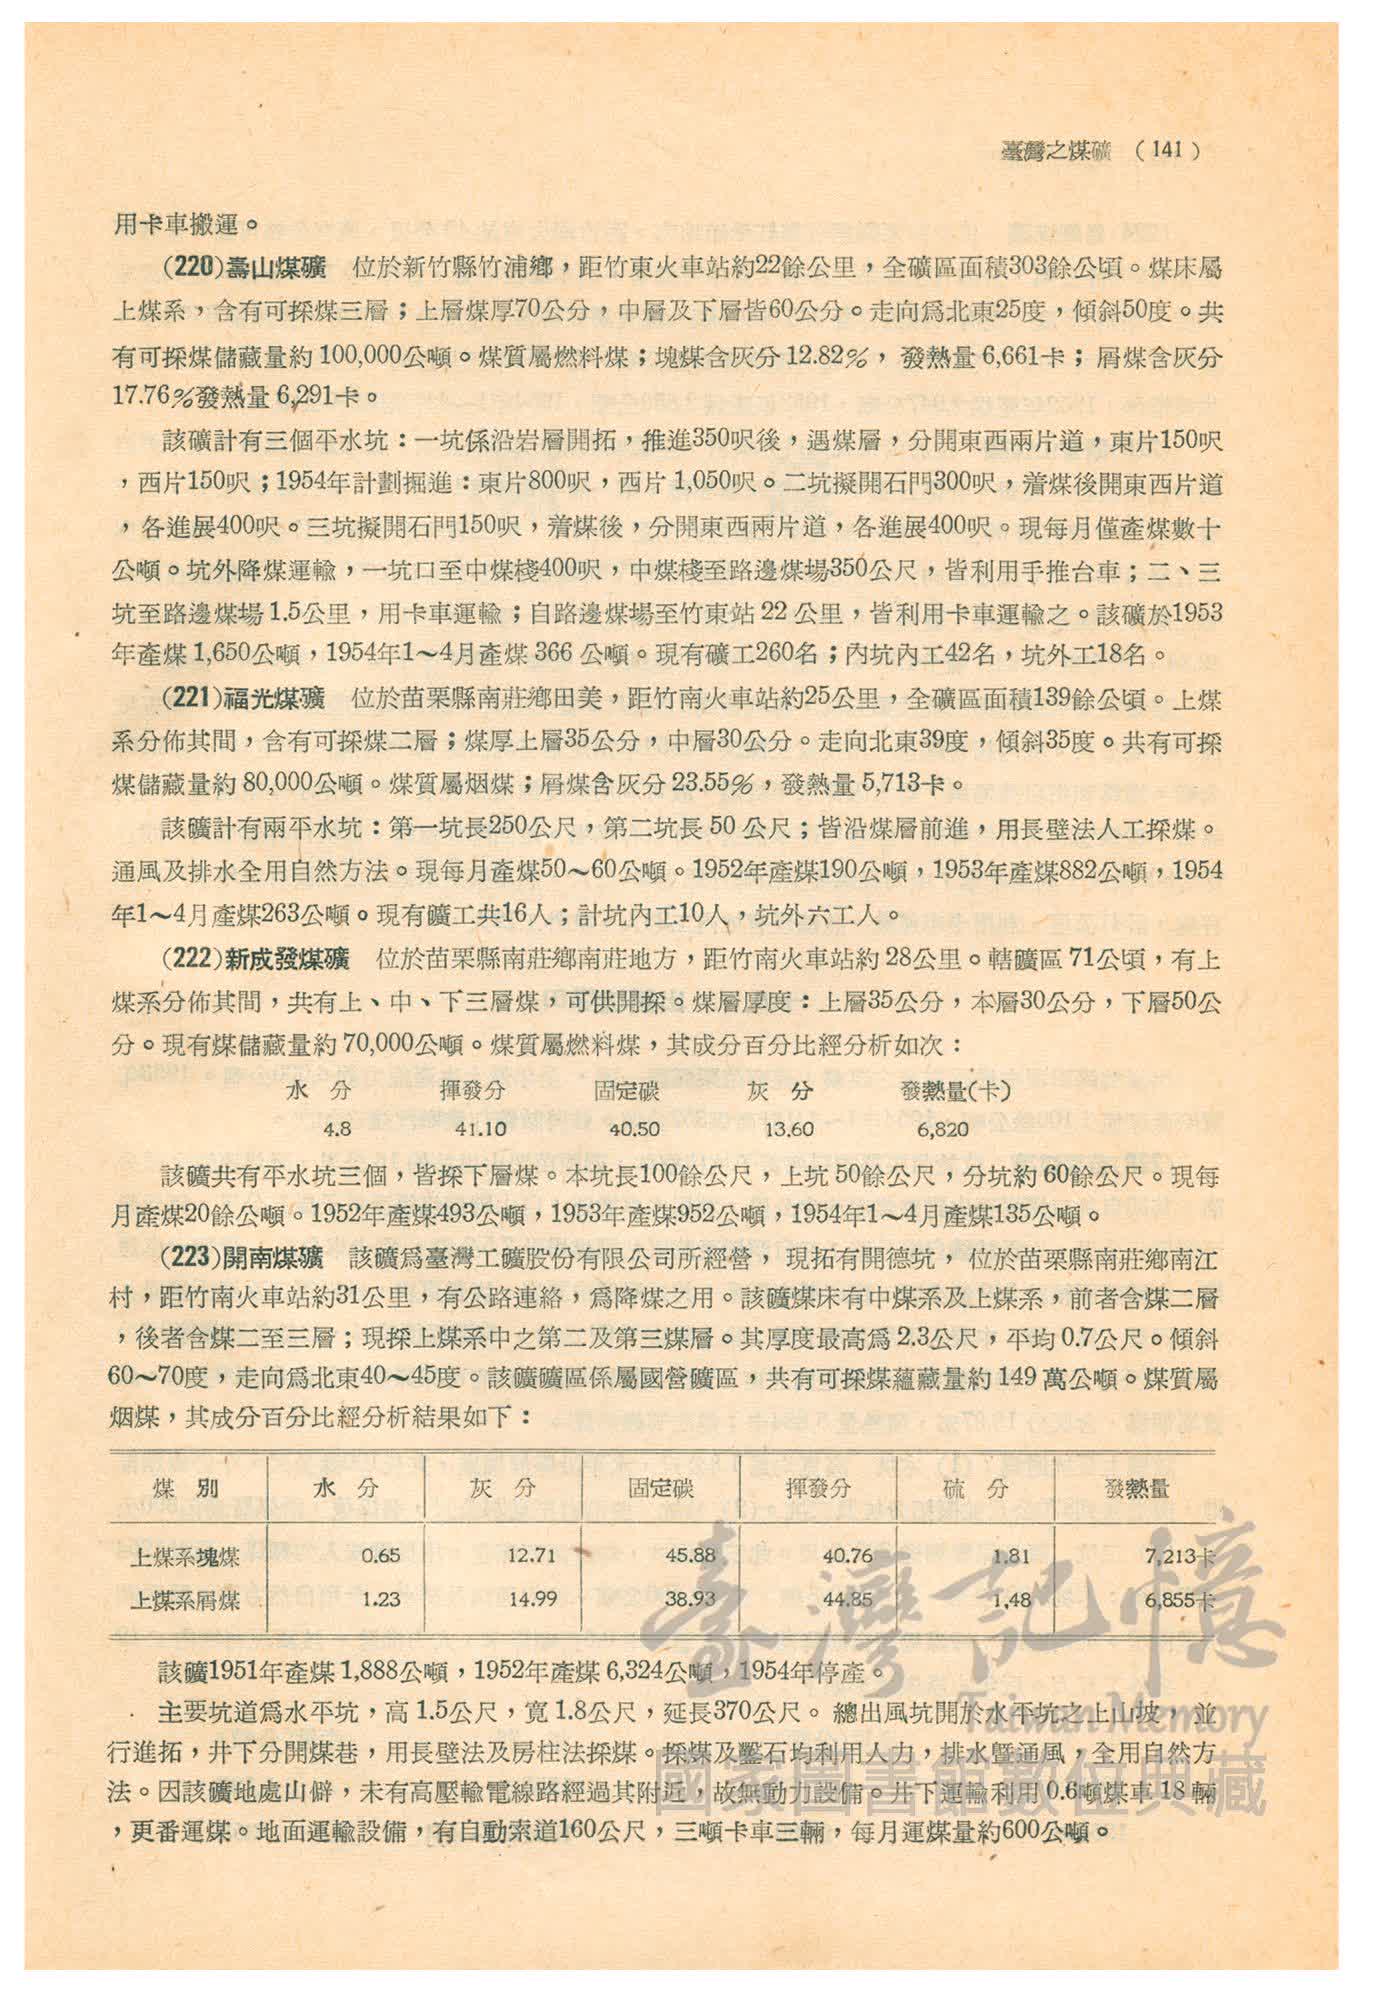 臺灣之煤礦 (141)
用卡車搬運。
(220)壽山煤礦 位於新竹縣竹浦鄉，距竹東火車站約22餘公里，全礦區面積303餘公頃。煤床屬
上煤系，含有可採煤三層；上層煤厚70公分，中層及下層皆60公分。走向爲北東25度，傾斜50度。共
有可採煤儲藏量約100,000公噸。煤質屬燃料煤；塊煤含灰分12.82%，發熱量6,661卡；屑煤含灰分
17.76%發熱量6,291卡。
該礦計有三個平水坑：一坑係沿岩層開拓，推進350呎後，遇煤層，分開東西兩片道，東片150呎
，西片150呎；1954年計劃掘進：東片800呎，西片1,050呎。二坑擬開石門300呎，着煤後開東西片道
，各進展400呎。三坑擬開石門150呎，着煤後，分開東西兩片道，各進展400呎。現每月僅產煤數十
公噸。坑外降煤運輸，一坑口至中煤棧400呎，中煤棧至路邊煤場350公尺，皆利用手推台車；二、三
坑至路邊煤場1.5公里，用卡車運輸；自路邊煤場至竹東站22公里，皆利用卡車運輸之。該礦於1953
年產煤1,650公噸，1954年1～4月產煤366公噸。現有礦工260名；內坑內工42名，坑外工18名。
(221)福光煤礦 位於苗栗縣南莊鄉田美，距竹南火車站約25公里，全礦區面積139餘公頃。上煤
系分佈其間，含有可採煤二層；煤厚上層35公分，中層30公分。走向北東39度，傾斜35度。共有可採
煤儲藏量約80,000公噸。煤質屬烟煤；屑煤含灰分23.55%，發熱量5,713卡。
該礦計有兩平水坑：第一坑長250公尺，第二坑長50公尺；皆沿煤層前進，用長壁法人工採煤。
通風及排水全用自然方法。現每月產煤50～60公噸。1952年產煤190公噸，1953年產煤882公噸，1954
年1～4月產煤263公噸。現有礦工共16人；計坑內工10人，坑外六工人。
(222)新成發煤礦 位於苗栗縣南莊鄉南莊地方，距竹南火車站約28公里。轄礦區71公頃，有上
煤系分佈其間，共有上、中、下三層煤，可供開採。煤層厚度：上層35公分，本層30公分，下層50公
分。現有煤儲藏量約70,000公噸。煤質屬燃料煤，其成分百分比經分析如次：
水 分 揮發分 固定碳 灰 分 發熱量(卡)
4.8 41.10 40.50 13.60 6,820
該礦共有平水坑三個，皆採下層煤。本坑長100餘公尺，上坑50餘公尺，分坑約60餘公尺。現每
月產煤20餘公噸。1952年產煤493公噸，1953年產煤952公噸，1954年1～4月產煤135公噸。
(223)開南煤礦 該礦爲臺灣工礦股份有限公司所經營，現拓有開德坑，位於苗栗縣南莊鄉南江
村，距竹南火車站約31公里，有公路連絡，爲降煤之用。該礦煤床有中煤系及上煤系，前者含煤二層
，後者含煤二至三層；現採上煤系中之第二及第三煤層。其厚度最高爲2.3公尺，平均0.7公尺。傾斜
60～70度，走向爲北東40～45度。該礦礦區係屬國營礦區，共有可採煤蘊藏量約149萬公噸。煤質屬
烟煤，其成分百分比經分析結果如下：
煤 別 水 分 灰 分 固定碳 揮發分 硫 分 發熱量
上煤系塊煤 0.65 12.71 45.88 40.76 1.81 7,213卡
上煤系屑煤 1.23 14.99 38.93 44.85 1.48 6,855卡
該礦1951年產煤1,888公噸，1952年產煤6,324公噸，1954年停產。
主要坑道爲水平坑，高1.5公尺，寬1.8公尺，延長370公尺。總出風坑開於水平坑之上山坡，並
行進拓，井下分開煤巷，用長壁法及房柱法採煤。採煤及鑿石均利用人力，排水曁通風，全用自然方
法。因該礦地處山僻，未有高壓輸電線路經過其附近，故無動力設備。井下運輸利用0.6噸煤車18輛
，更番運煤。地面運輸設備，有自動索道160公尺，三噸卡車三輛，每月運煤量約600公噸。
臺灣記憶
Taiwan Memory
國家圖書館數位典藏